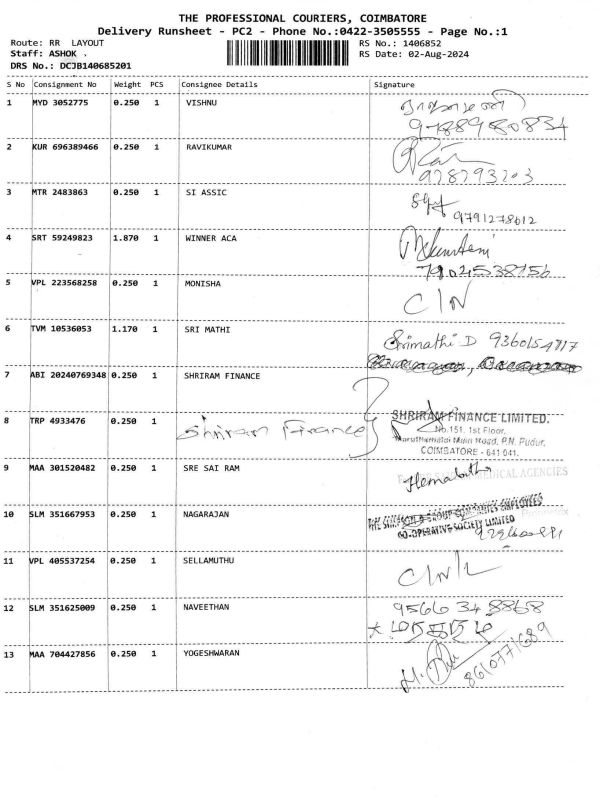 THE PROFESSIONAL COURIERS, COIMBATORE
Delivery Runsheet - PC2 - Phone No.:0422-3505555 - Page No.:1
Route: RR LAYOUT RS No.: 1406852
Staff: ASHOK . RS Date: 02-Aug-2024
DRS No.: DCJB140685201
S No Consignment No Weight PCS Consignee Details Signature
1 MYD 3052775 0.250 1 VISHNU
9788980834
2 KUR 696389466 0.250 1 RAVIKUMAR
3 MTR 2483863 0.250 1 SI ASSIC
9791278612
4 SRT 59249823 1.870 1 WINNER ACA
7904538756
5 VPL 223568258 0.250 1 MONISHA
6 TVM 10536053 1.170 1 SRI MATHI
Srimathi D 9360154717
7 ABI 20240769348 0.250 1 SHRIRAM FINANCE
8 TRP 4933476 0.250 1 Shriram Finance SHRIRAM FINANCE LIMITED.
No.151, 1st Floor,
Maruthamalai Main Road, P.N. Pudur,
COIMBATORE - 641 041.
9 MAA 301520482 0.250 1 SRE SAI RAM Hemalatha MEDICAL AGENCIES
10 SLM 351667953 0.250 1 NAGARAJAN
THE SIMPSON & GROUP COMPANIES EMPLOYEES
CO-OPERATIVE SOCIETY LIMITED
11 VPL 405537254 0.250 1 SELLAMUTHU
12 SLM 351625009 0.250 1 NAVEETHAN 9566 34 8868
13 MAA 704427856 0.250 1 YOGESHWARAN
8610771689